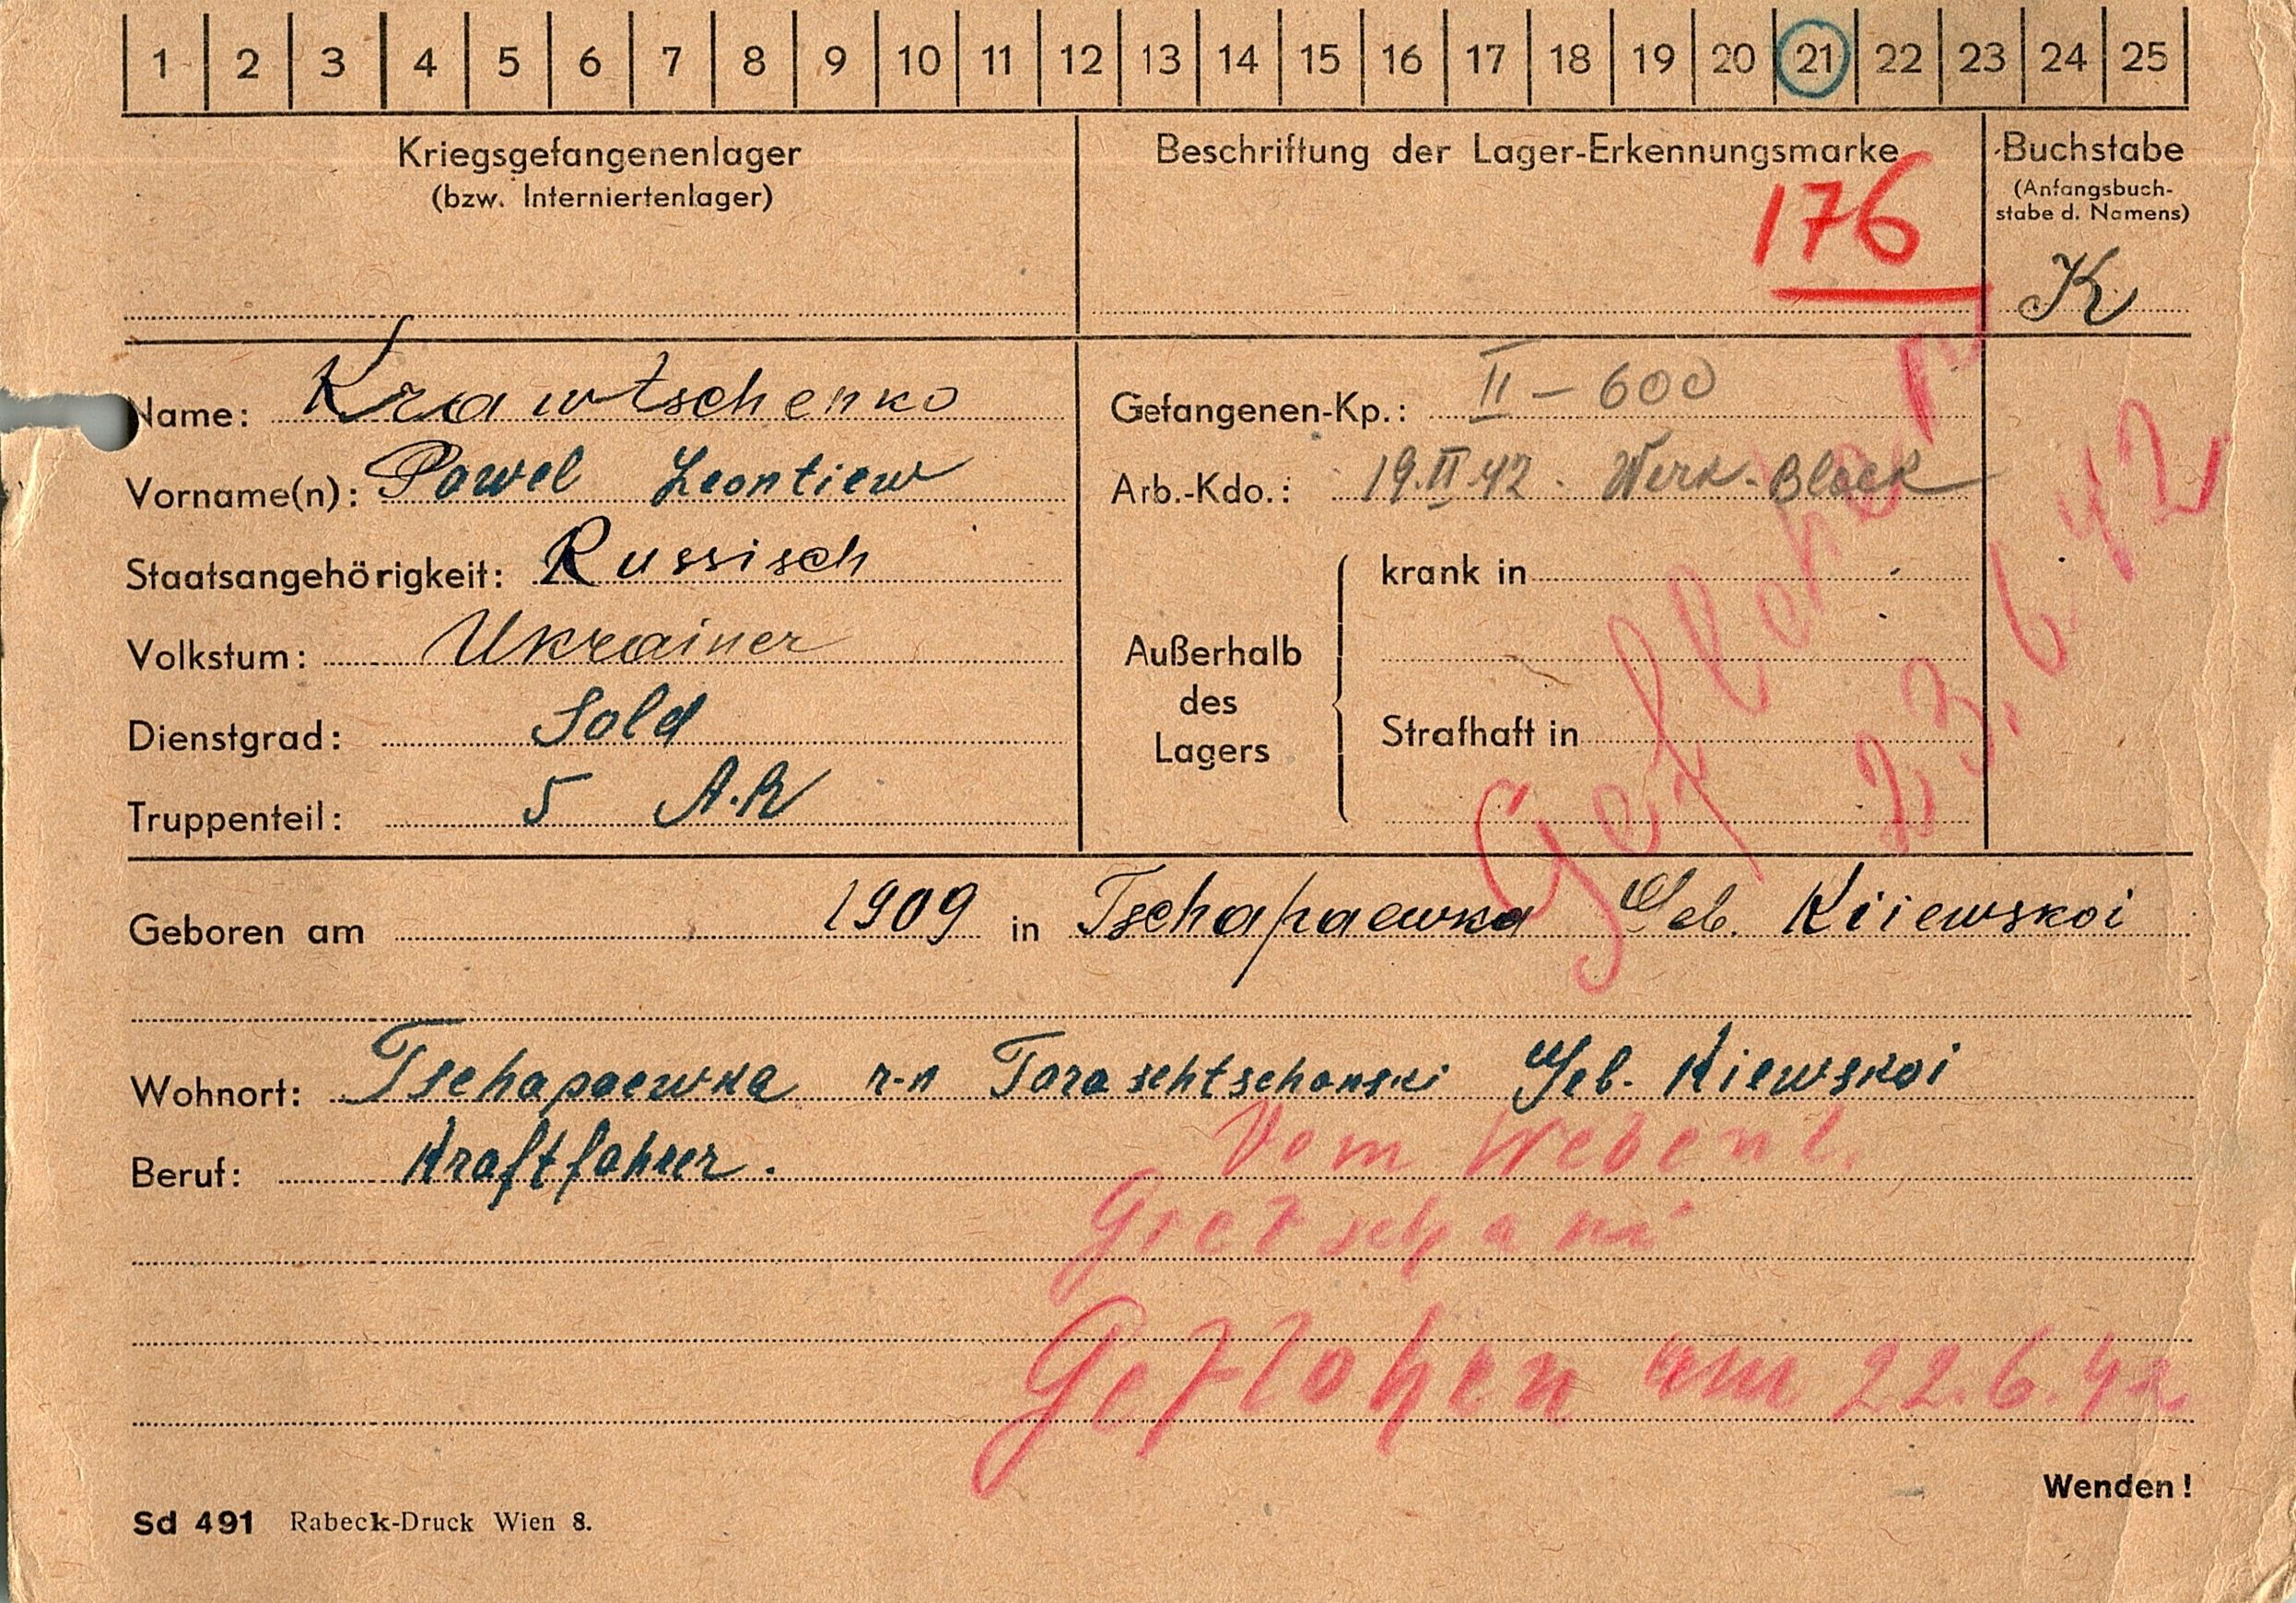 1 2 3 4 5 6 7 8 9 10 11 12 13 14 15 16 17 18 19 20 21 22 23 24 25
Kriegsgefangenenlager
(bzw. Interniertenlager)
Beschriftung der Lager-Erkennungsmarke
176
Buchstabe
(Anfangsbuch-
stabe d. Namens)
K
Name: Krawtschenko
Vorname(n): Pawel Leontiew
Staatsangehörigkeit: Russisch
Volkstum: Ukrainer
Dienstgrad: Sold
Truppenteil: 5 A.R
Gefangenen-Kp.: II – 600
Arb.-Kdo.: 19.II.42. Werk-Block
Außerhalb
des
Lagers
krank in
Strafhaft in
Geflohen
23.6.42
Geboren am 1909 in Tschapaewka Geb. Kiiewskoi
Wohnort: Tschapaewka r-n Taraschtschanski Geb. Kiewskoi
Beruf: Kraftfahrer.
Vom
Geflohen am 22.6.42
Wenden!
Sd 491 Rabeck-Druck Wien 8.